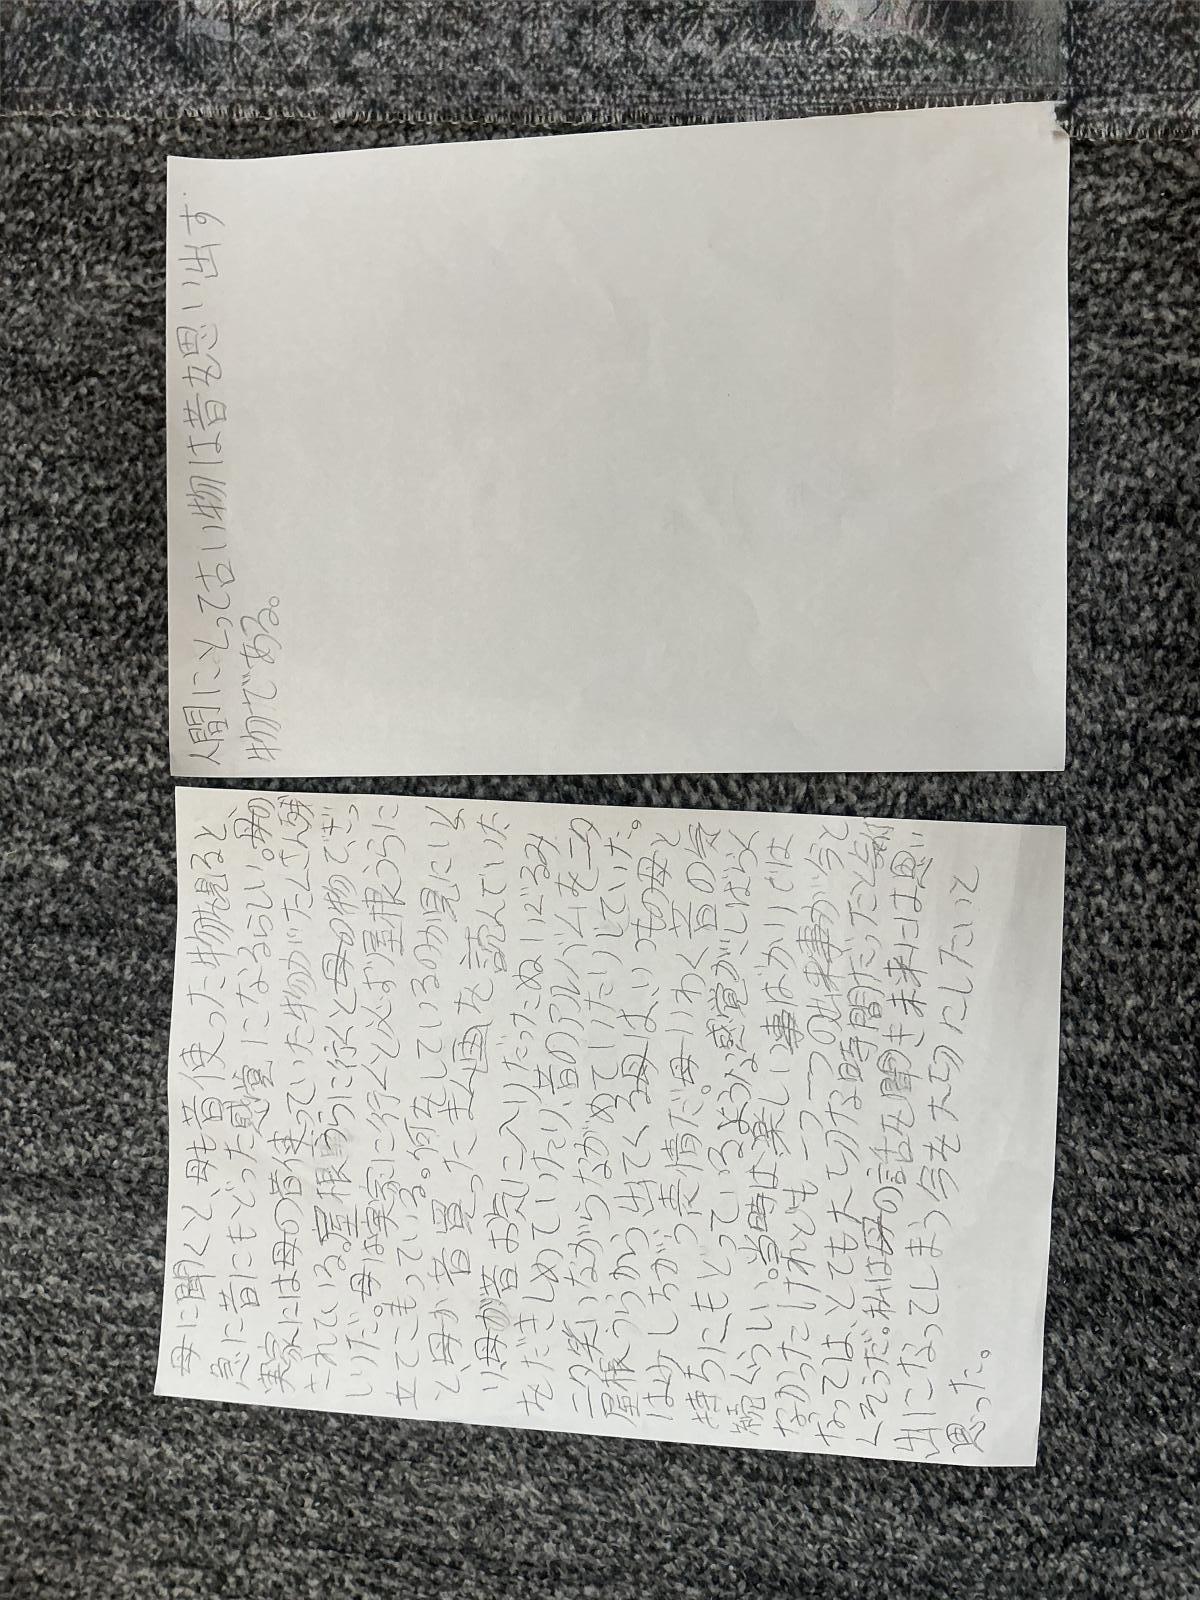 人間にとって古い物は昔を思い出す
物である。
母に聞くと母も昔使った物を見ると
急に昔にもどった感覚になるらしい。母の
実家には母の昔使っていた物がたくさん残
されている。屋根うらに行くと母の物でぎっ
しりだ。母は実家に行くと必ず屋根うらに
立てこもっている。何をしているのか見にいく
と、母が昔買ったまん画を読んでいた
り、母が昔お気に入りだったぬいぐるみ
をだきしめていたり、昔のアルバムをニタ
ニタ笑いながらながめていたりしていた。
屋根うらから出てくる母は、いつもの母と
は少しちがう表情だ。母いわく、昔の気
持ちにもどっているような感覚がしばらく
続くらしい。当時は楽しい事ばかりでは
なかったけれども一つ一つの出来事が今と
なっては、とても大切な時間だったと感
くそうだ。私は母の話を聞き未来には思い
出になってしまう今を大切にしたいと
思った。